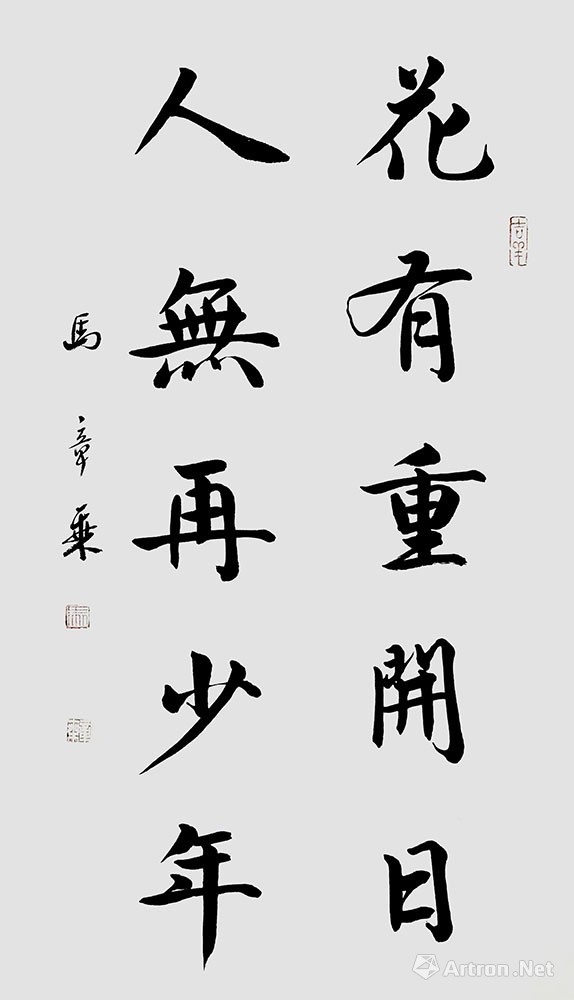 花有重開日
人無再少年
馬章乘
Artron.Net